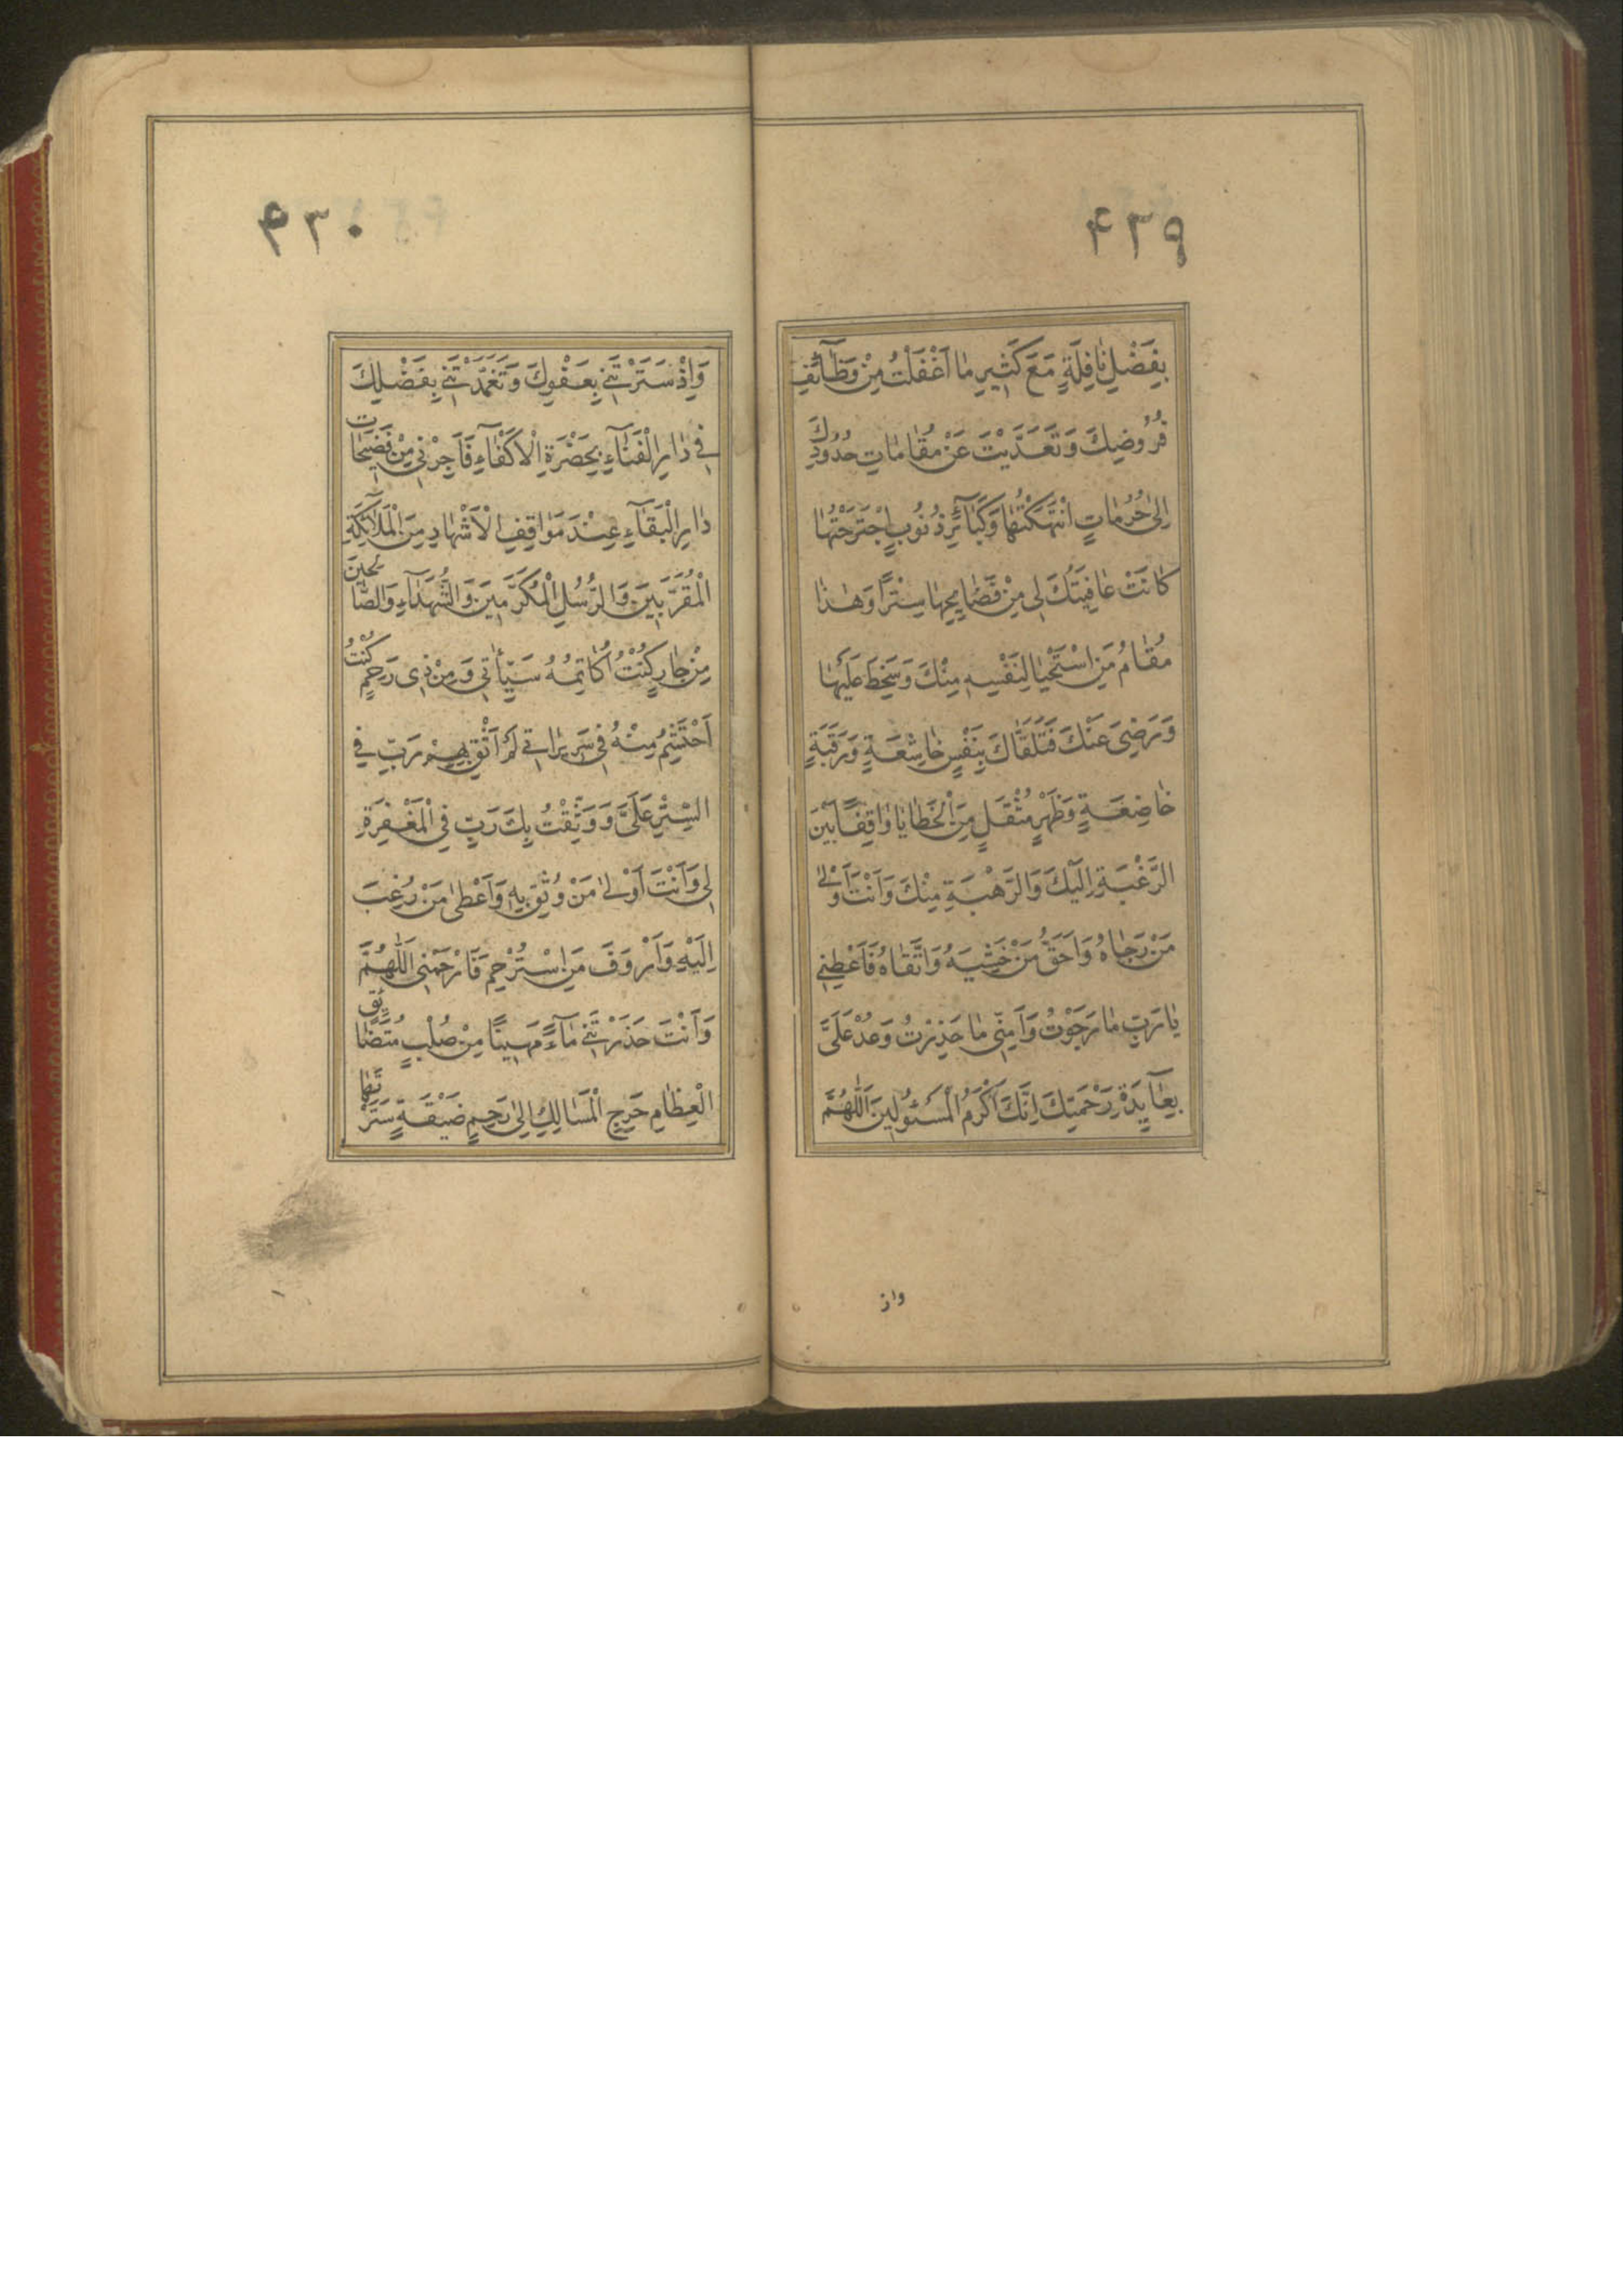 ۴۲۹
بِفَضْلِ نَافِلَةٍ مَعَ كَثِيرِ مَا اَغْفَلْتُ مِنْ وَظَآئِفِ
فُرُوضِكَ وَتَعَدَّيْتَ عَنْ مَقَامَاتِ حُدُودِكَ
اِلىٰ حُرُمَاتٍ انْتَهَكْتُهَا وَكَبَآئِرِ ذُنُوبٍ اجْتَرَحْتُهَا
كَانَتْ عَافِيَتُكَ لِى مِنْ فَضَايِحِهَا سِتْرًا وَهٰذَا
مَقَامُ مَنِ اسْتَحْيَا لِنَفْسِهِ مِنْكَ وَسَخِطَ عَلَيْهَا
وَرَضِىَ عَنْكَ فَتَلَقَّاكَ بِنَفْسٍ خَاشِعَةٍ وَرَقَبَةٍ
خَاضِعَةٍ وَظَهْرٍ مُثْقَلٍ مِنَ الْخَطَايَا وَاقِفًا بَيْنَ
الرَّغْبَةِ اِلَيْكَ وَالرَّهْبَةِ مِنْكَ وَاَنْتَ اَوْلىٰ
مَنْ رَجَاهُ وَاَحَقُّ مَنْ خَشِيَهُ وَاتَّقَاهُ فَاَعْطِنِى
يَا رَبِّ مَا رَجَوْتُ وَاٰمِنِّى مَا حَذِرْتُ وَعُدْ عَلَىَّ
بِعَآيِدَةِ رَحْمَتِكَ اِنَّكَ اَكْرَمُ الْمَسْئُولِينَ اَللّٰهُمَّ
واذ
۴۳۰
وَاِذْ سَتَرْتَنِى بِعَفْوِكَ وَتَغَمَّدْتَنِى بِفَضْلِكَ
فِى دَارِ الْفَنَآءِ بِحَضْرَةِ الْاَكْفَآءِ فَاَجِرْنِى مِنْ فَضِيحَاتِ
دَارِ الْبَقَآءِ عِنْدَ مَوَاقِفِ الْاَشْهَادِ مِنَ الْمَلَآئِكَةِ
الْمُقَرَّبِينَ وَالرُّسُلِ الْمُكَرَّمِينَ وَالشُّهَدَآءِ وَالصَّالِحِينَ
مِنْ جَارٍ كُنْتُ اُكَاتِمُهُ سَيِّئَاتِى وَمِنْ ذِى رَحِمٍ كُنْتُ
اَحْتَشِمُ مِنْهُ فِى سَرِيرَاتِى لَمْ اَثِقْ بِهِمْ رَبِّ فِى
السِّتْرِ عَلَىَّ وَوَثِقْتُ بِكَ رَبِّ فِى الْمَغْفِرَةِ
لِى وَاَنْتَ اَوْلىٰ مَنْ وُثِقَ بِهِ وَاَعْطىٰ مَنْ رُغِبَ
اِلَيْهِ وَاَرْوَفَ مَنِ اسْتُرْحِمَ فَارْحَمْنِى اَللّٰهُمَّ
وَاَنْتَ حَدَرْتَنِى مَآءً مَهِينًا مِنْ صُلْبٍ مُتَضَائِقِ
الْعِظَامِ حَرِجِ الْمَسَالِكِ اِلىٰ رَحِمٍ ضَيِّقَةٍ سَتَرْتَهَا